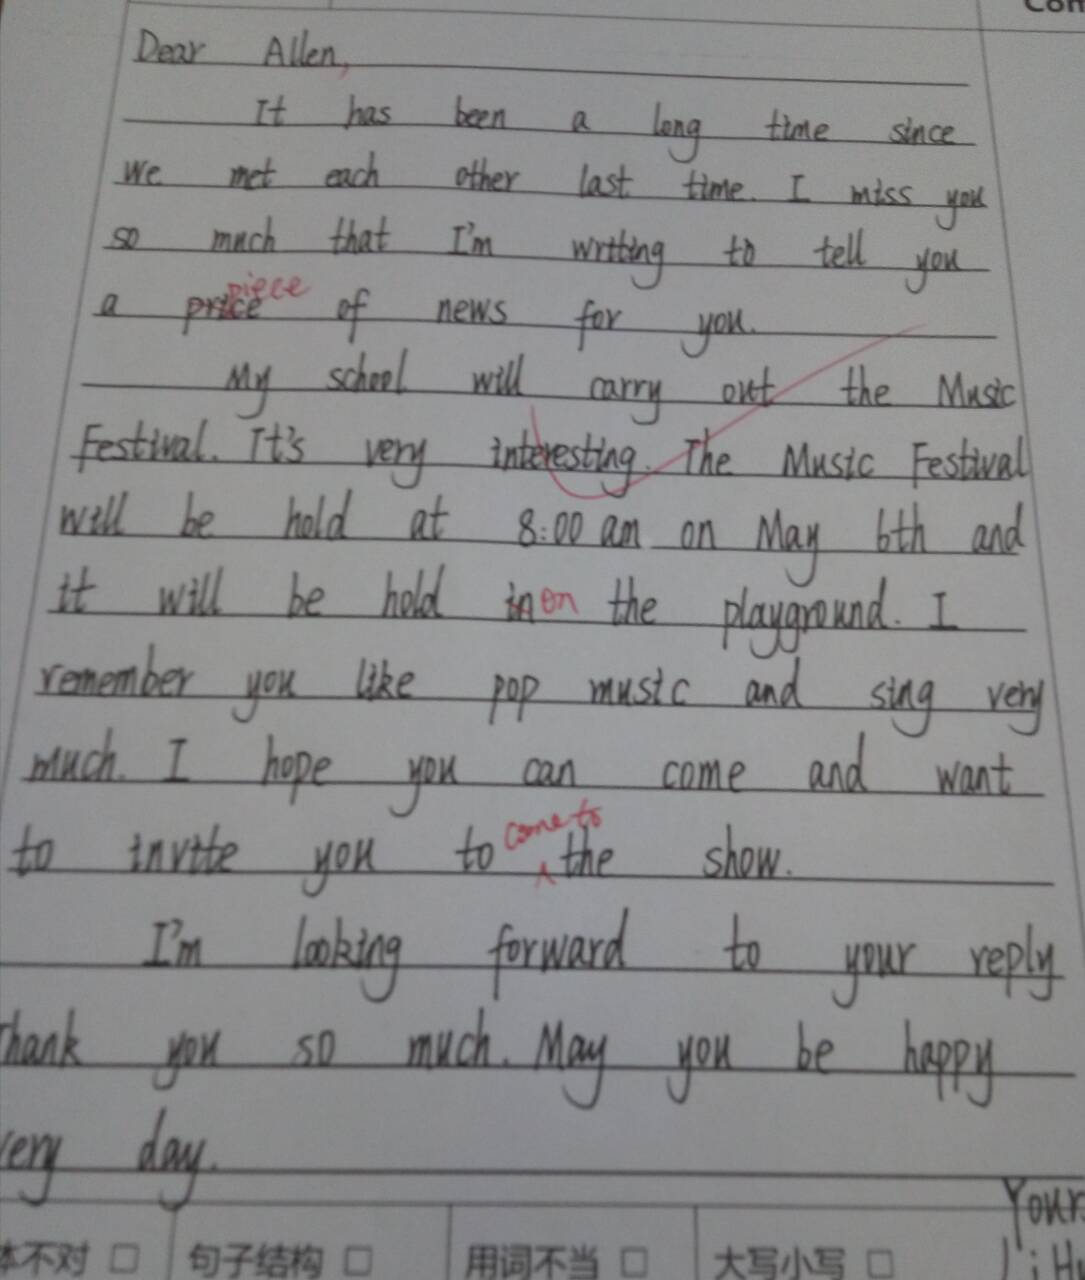 Com
Dear Allen,
It has been a long time since
we met each other last time. I miss you
so much that I'm writing to tell you
piece
a price of news for you.
My school will carry out the Music
Festival. It's very interesting. The Music Festival
will be hold at 8:00 am on May 6th and
it will be hold in on the playground. I
remember you like pop music and sing very
much. I hope you can come and want
come to
to invite you to the show.
I'm looking forward to your reply
Thank you so much. May you be happy
very day.
Your
Li Hu
体不对 □ 句子结构 □ 用词不当 □ 大写小写 □